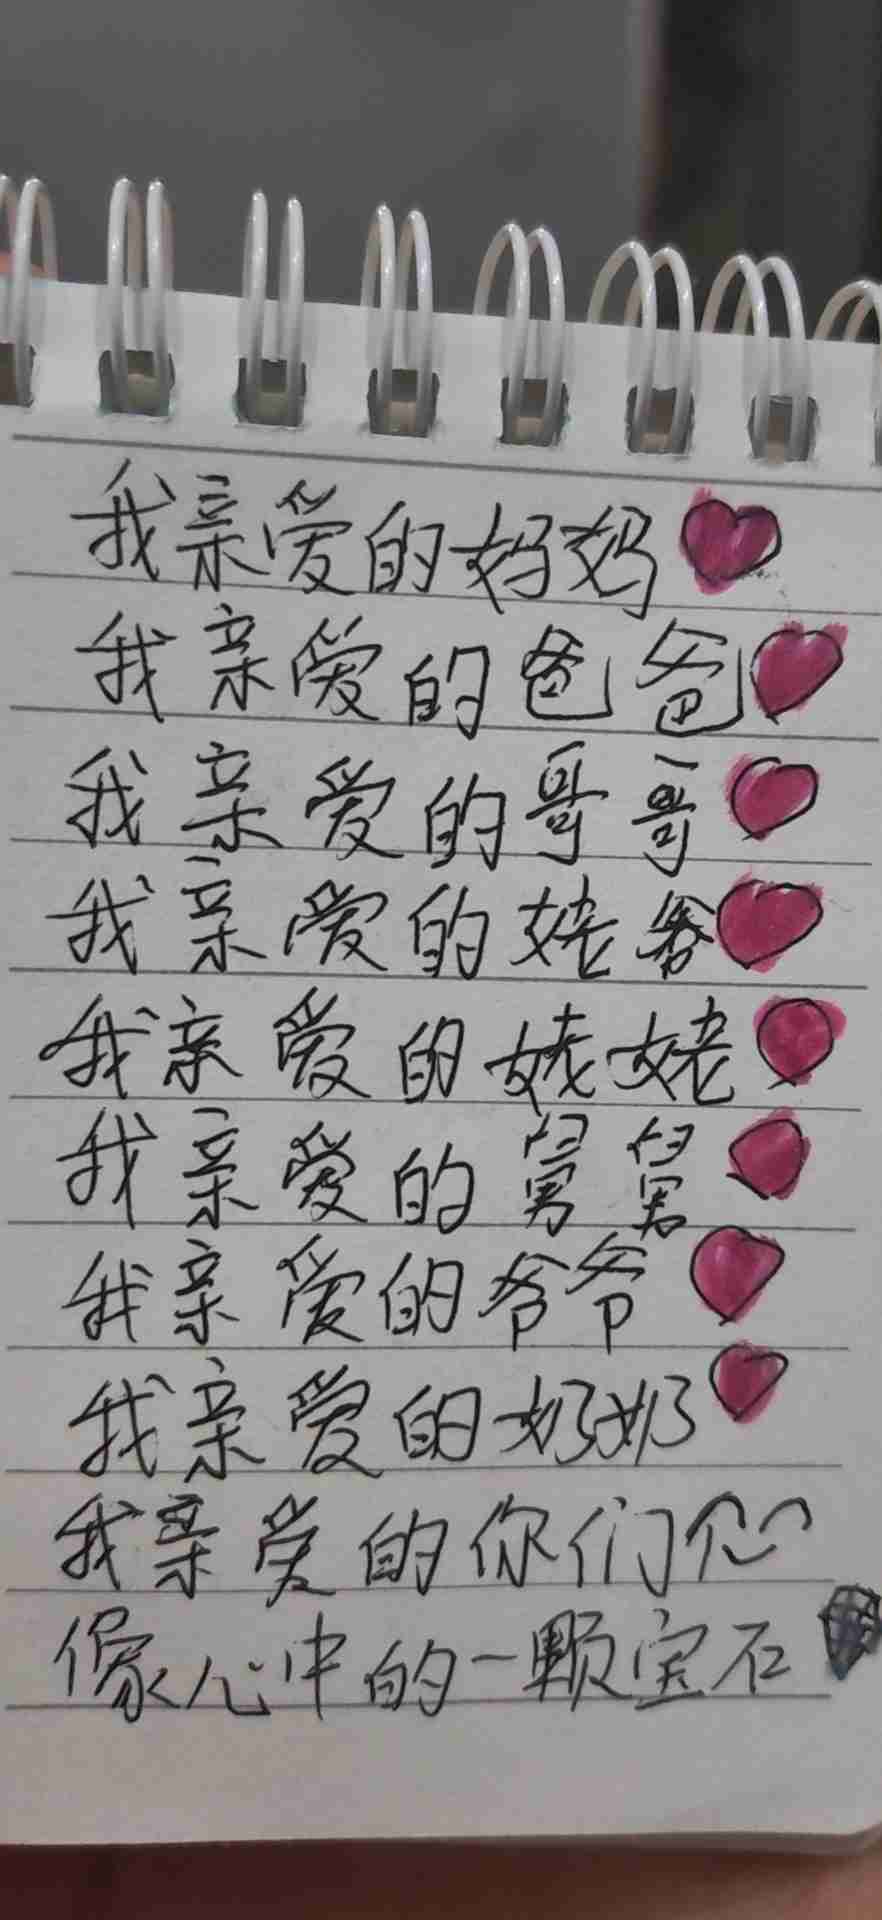 我亲爱的妈妈
我亲爱的爸爸
我亲爱的哥哥
我亲爱的姥爷
我亲爱的姥姥
我亲爱的舅舅
我亲爱的爷爷
我亲爱的奶奶
我亲爱的你们
像心中的一颗宝石